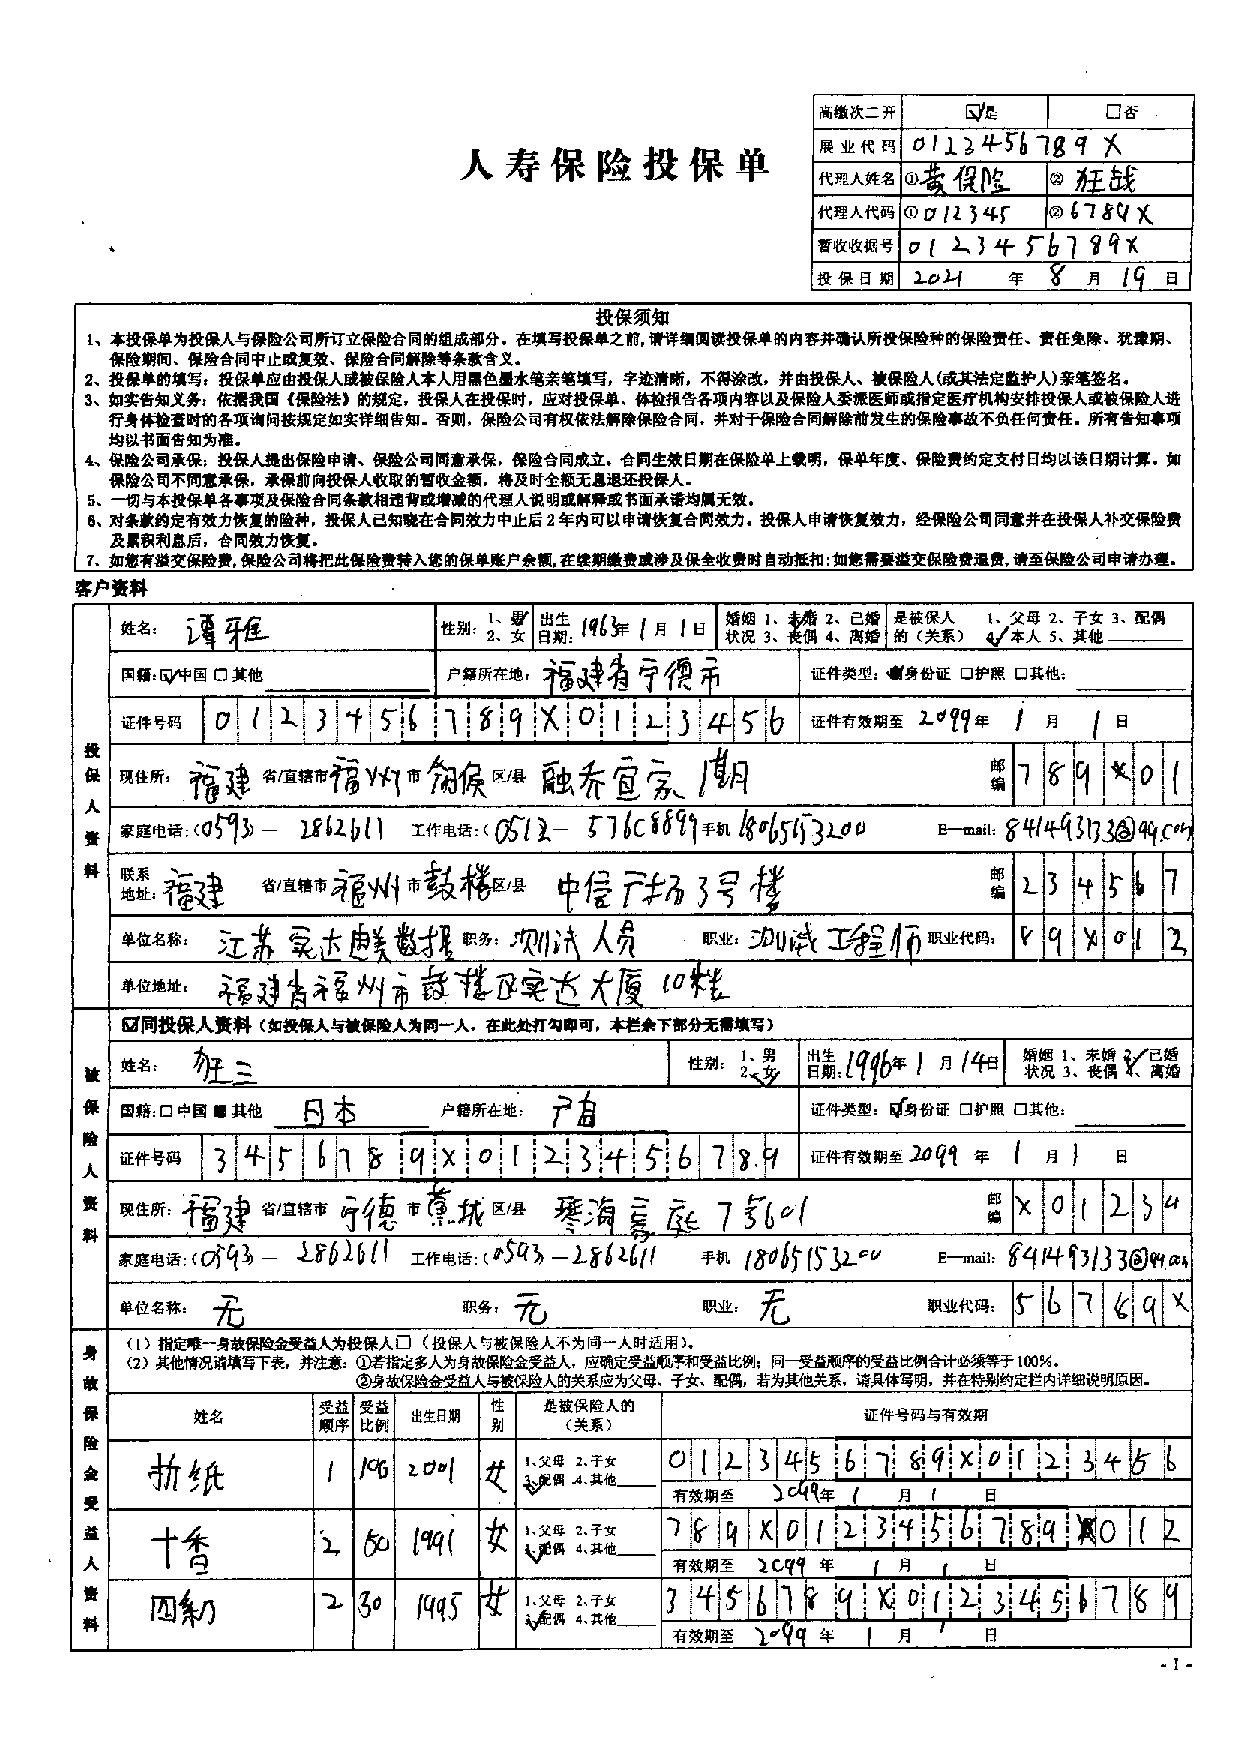 高缴次二开 ☑是 □否
人寿保险投保单
展业代码 0123456789X
代理人姓名 ①黄保险 ②狂战
代理人代码 ①012345 ②6789X
暂收收据号 0123456789X
投保日期 2021 年 8 月 19 日
投保须知
1、本投保单为投保人与保险公司所订立保险合同的组成部分。在填写投保单之前,请详细阅读投保单的内容并确认所投保险种的保险责任、责任免除、犹豫期、
保险期间、保险合同中止或复效、保险合同解除等条款含义。
2、投保单的填写：投保单应由投保人或被保险人本人用黑色墨水笔亲笔填写，字迹清晰，不得涂改，并由投保人、被保险人(或其法定监护人)亲笔签名。
3、如实告知义务：依据我国《保险法》的规定，投保人在投保时，应对投保单、体检报告各项内容以及保险人委派医师或指定医疗机构安排投保人或被保险人进
行身体检查时的各项询问按规定如实详细告知。否则，保险公司有权依法解除保险合同，并对于保险合同解除前发生的保险事故不负任何责任。所有告知事项
均以书面告知为准。
4、保险公司承保：投保人提出保险申请、保险公司同意承保，保险合同成立，合同生效日期在保险单上载明，保单年度、保险费约定支付日均以该日期计算。如
保险公司不同意承保，承保前向投保人收取的暂收金额，将及时全额无息退还投保人。
5、一切与本投保单各事项及保险合同条款相违背或增减的代理人说明或解释或书面承诺均属无效。
6、对条款约定有效力恢复的险种，投保人已知晓在合同效力中止后2年内可以申请恢复合同效力。投保人申请恢复效力，经保险公司同意并在投保人补交保险费
及累积利息后，合同效力恢复。
7、如您有溢交保险费,保险公司将把此保险费转入您的保单账户余额,在续期缴费或涉及保全收费时自动抵扣;如您需要溢交保险费退费,请至保险公司申请办理。
客户资料
投保人资料
姓名： 谭雅 性别： 1、男 2、女 出生日期: 1963年 1 月 1 日 婚姻状况 1、未婚 2、已婚 3、丧偶 4、离婚 是被保人的（关系） 1、父母 2、子女 3、配偶 4、本人 5、其他
国籍:☑中国 □其他 户籍所在地: 福建省宁德市 证件类型: ■身份证 □护照 □其他:
证件号码 0123456789X0123456 证件有效期至 2099年 1 月 1 日
现住所： 福建 省/直辖市 福州 市 闽侯 区/县 融乔宜家1期 邮编 789X01
家庭电话:(0593)— 2862611 工作电话:(0512— 57608899 手机 18065153200 E—mail: 841493133@qq.com
联系地址: 福建 省/直辖市 福州 市 鼓楼 区/县 中信广场3号楼 邮编 234567
单位名称: 江苏实达迪美数据 职务: 测试人员 职业: 测试工程师 职业代码: 89X012
单位地址: 福建省福州市鼓楼区实达大厦10楼
被保险人资料
☑同投保人资料（如投保人与被保险人为同一人，在此处打勾即可，本栏余下部分无需填写）
姓名: 狂三 性别: 1、男 2、女 出生日期: 1996年 1 月 14日 婚姻状况 1、未婚 2、已婚 3、丧偶 4、离婚
国籍:□中国 ■其他 日本 户籍所在地: 证件类型: ☑身份证 □护照 □其他:
证件号码 3456789X0123456789 证件有效期至 2099 年 1 月 1 日
现住所: 福建 省/直辖市 宁德 市 蕉城 区/县 琴海豪庭7号601 邮编 X01234
家庭电话:(0593)— 2862611 工作电话:(0593)—2862611 手机 18065153200 E—mail: 841493133@qq.com
单位名称: 无 职务: 无 职业: 无 职业代码: 56789X
身故保险金受益人资料
（1）指定唯一身故保险金受益人为投保人□（投保人与被保险人不为同一人时适用）。
（2）其他情况请填写下表，并注意：①若指定多人为身故保险金受益人，应确定受益顺序和受益比例；同一受益顺序的受益比例合计必须等于100%。
②身故保险金受益人与被保险人的关系应为父母、子女、配偶，若为其他关系，请具体写明，并在特别约定栏内详细说明原因。
姓名 受益顺序 受益比例 出生日期 性别 是被保险人的（关系） 证件号码与有效期
折纸 1 100 2001 女 1、父母 2、子女 3、配偶 4、其他 0123456789X0123456
有效期至 2099年 1 月 1 日
十香 2 50 1991 女 1、父母 2、子女 3、配偶 4、其他 789X0123456789X012
有效期至 2099 年 1 月 1 日
四糸乃 2 30 1995 女 1、父母 2、子女 3、配偶 4、其他 3456789X0123456789
有效期至 2099 年 1 月 1 日
- 1 -